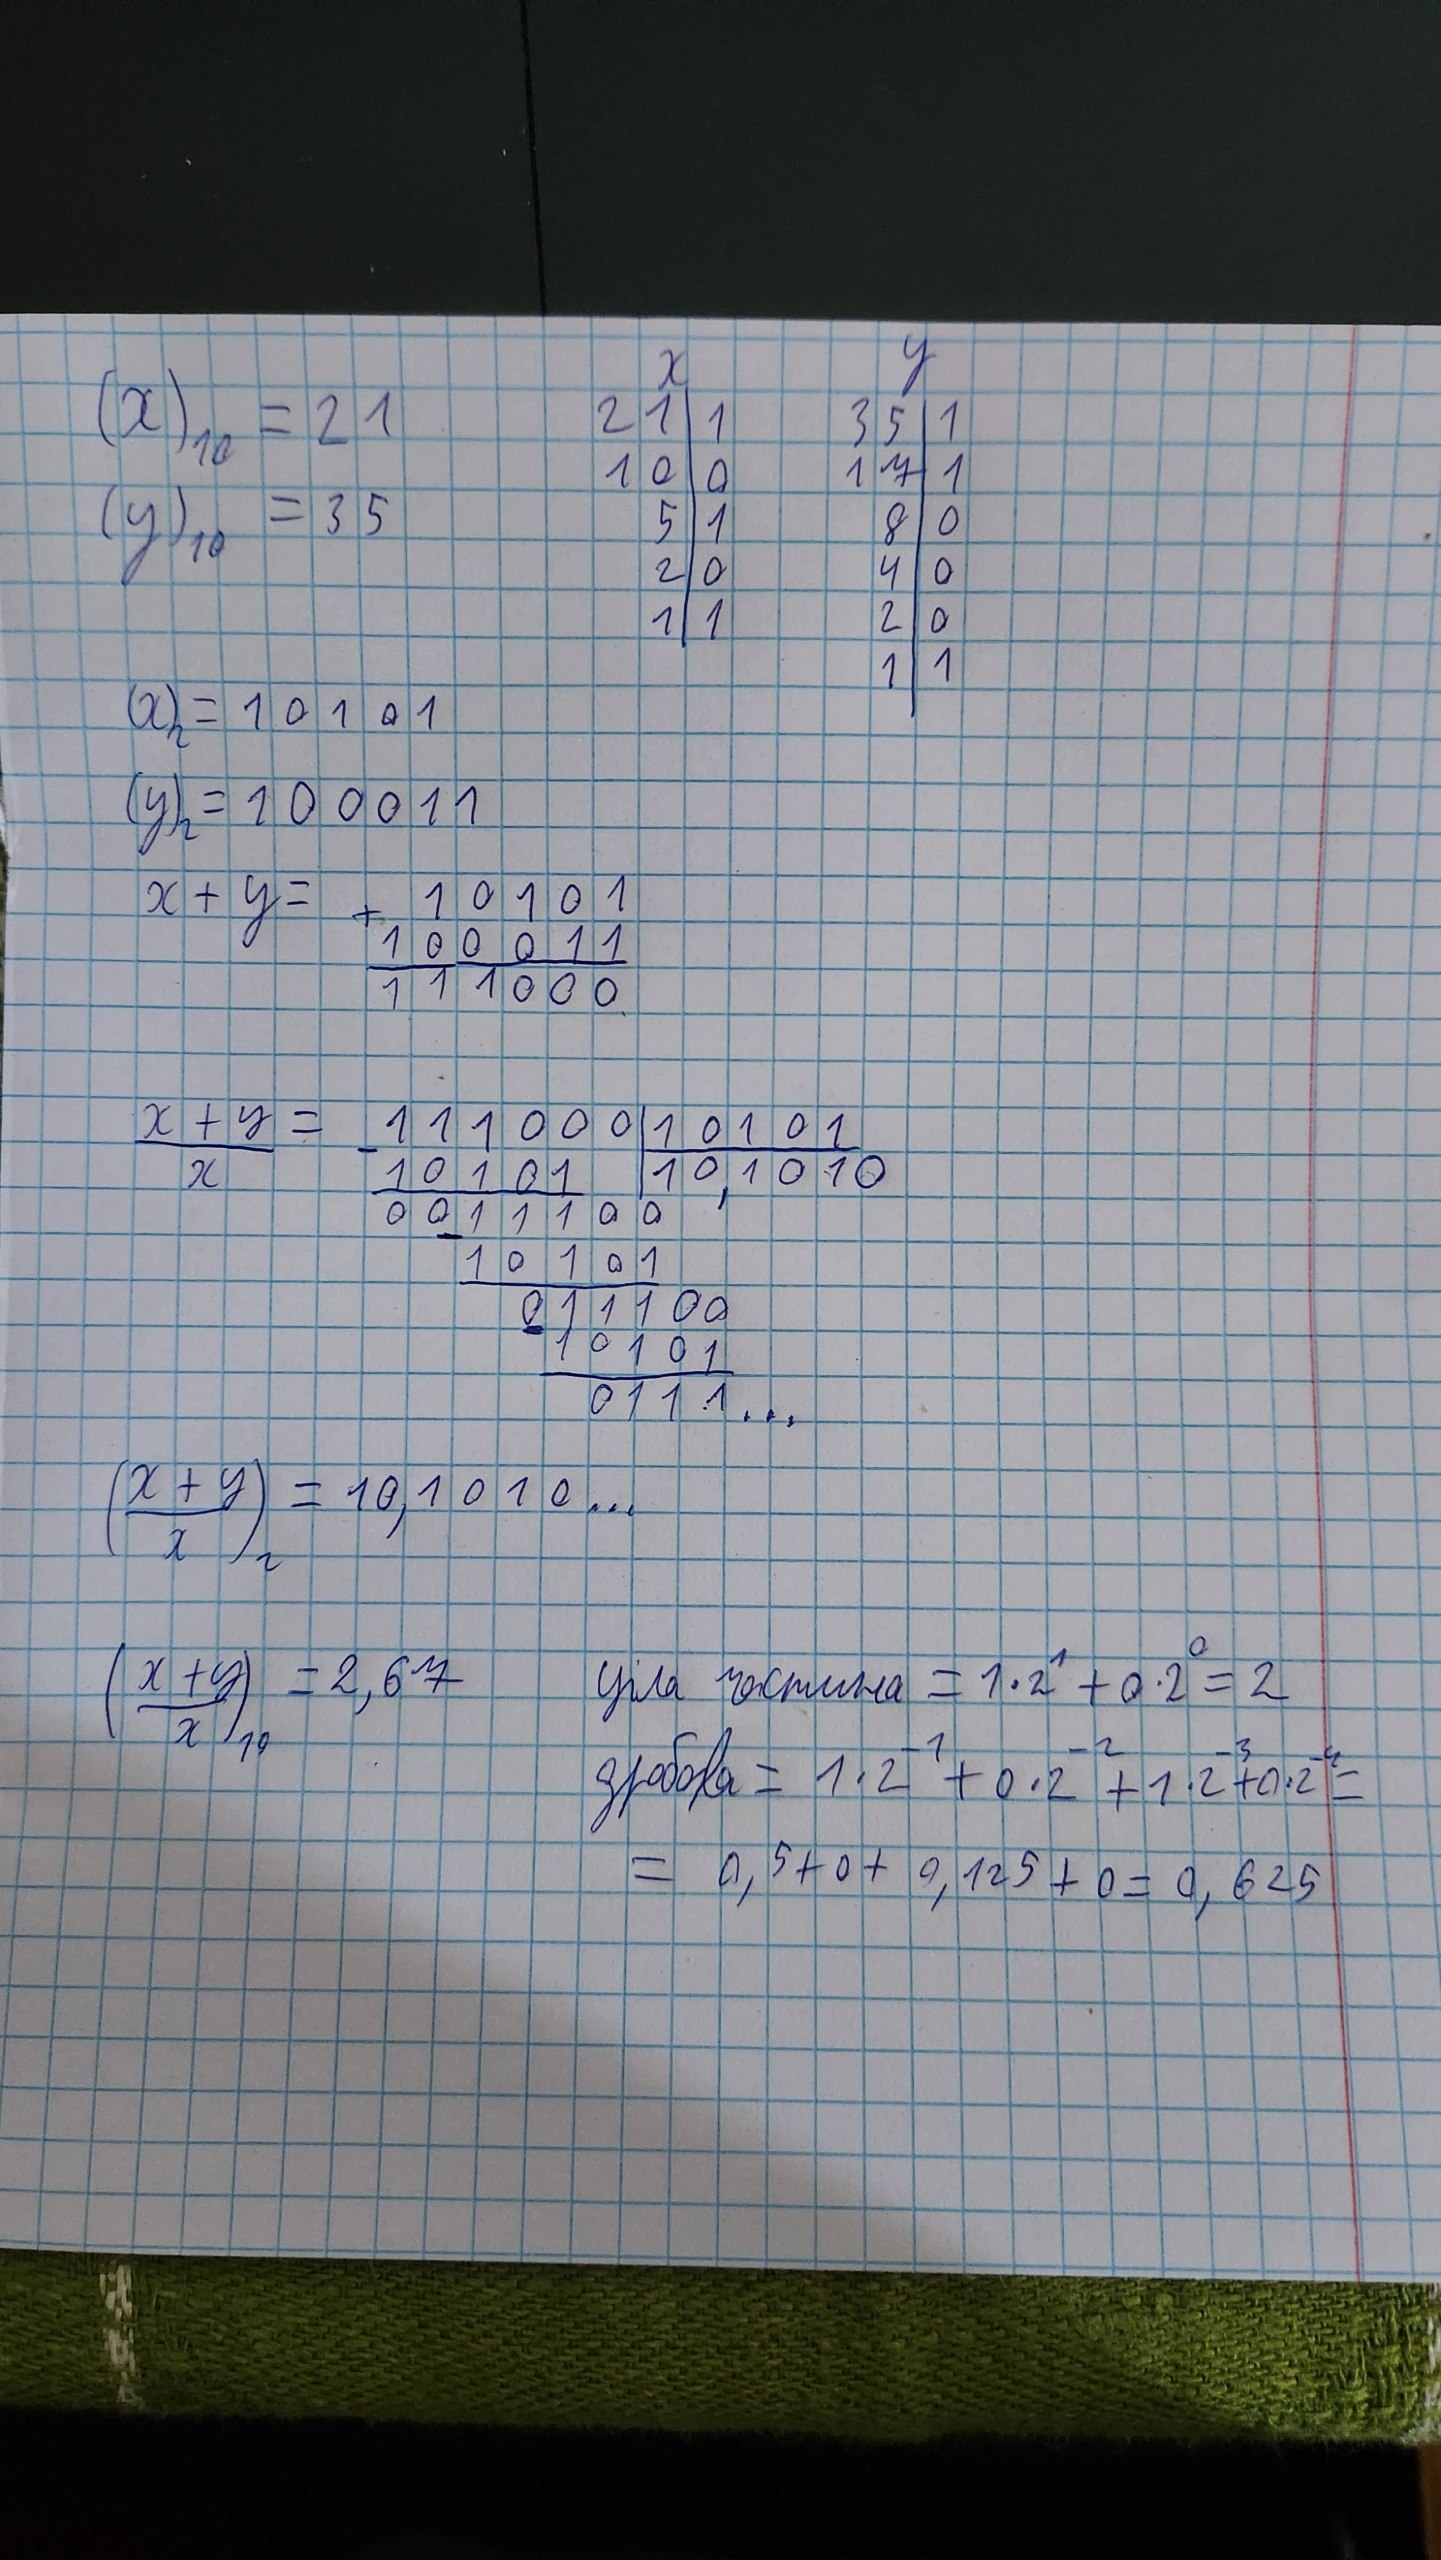 x y
(x)₁₀ = 21 21|1 35|1
10|0 17|1
(y)₁₀ = 35 5|1 8|0
2|0 4|0
1|1 2|0
1|1
(x)₂ = 10101
(y)₂ = 100011
x + y = + 10101
100011
111000
x + y = - 111000|10101
x 10101 10,1010
0011100
- 10101
011100
- 10101
0111...
(x + y / x)₂ = 10,1010...
(x + y / x)₁₀ = 2,67 ціла частина = 1·2¹ + 0·2⁰ = 2
дробова = 1·2⁻¹ + 0·2⁻² + 1·2⁻³ + 0·2⁻⁴ =
= 0,5 + 0 + 0,125 + 0 = 0,625